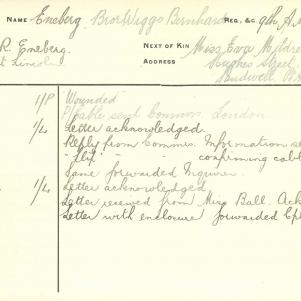 NAME Eneberg Bror Wiggo Bernhard REG. & C. 9th A.
R. Eneberg.
NEXT OF KIN Miss Eva Mildre
ADDRESS Hughes Street
t Lincoln
1/P Wounded
Cable send Commn. London
1/4 Letter acknowledged.
Reply from Commis. Information se
" " confirming cabl
Same forwarded Inquirer.
1/4 Letter acknowledged.
Letter received from Miss Ball. Ack
Letter with enclosure forwarded Cpl